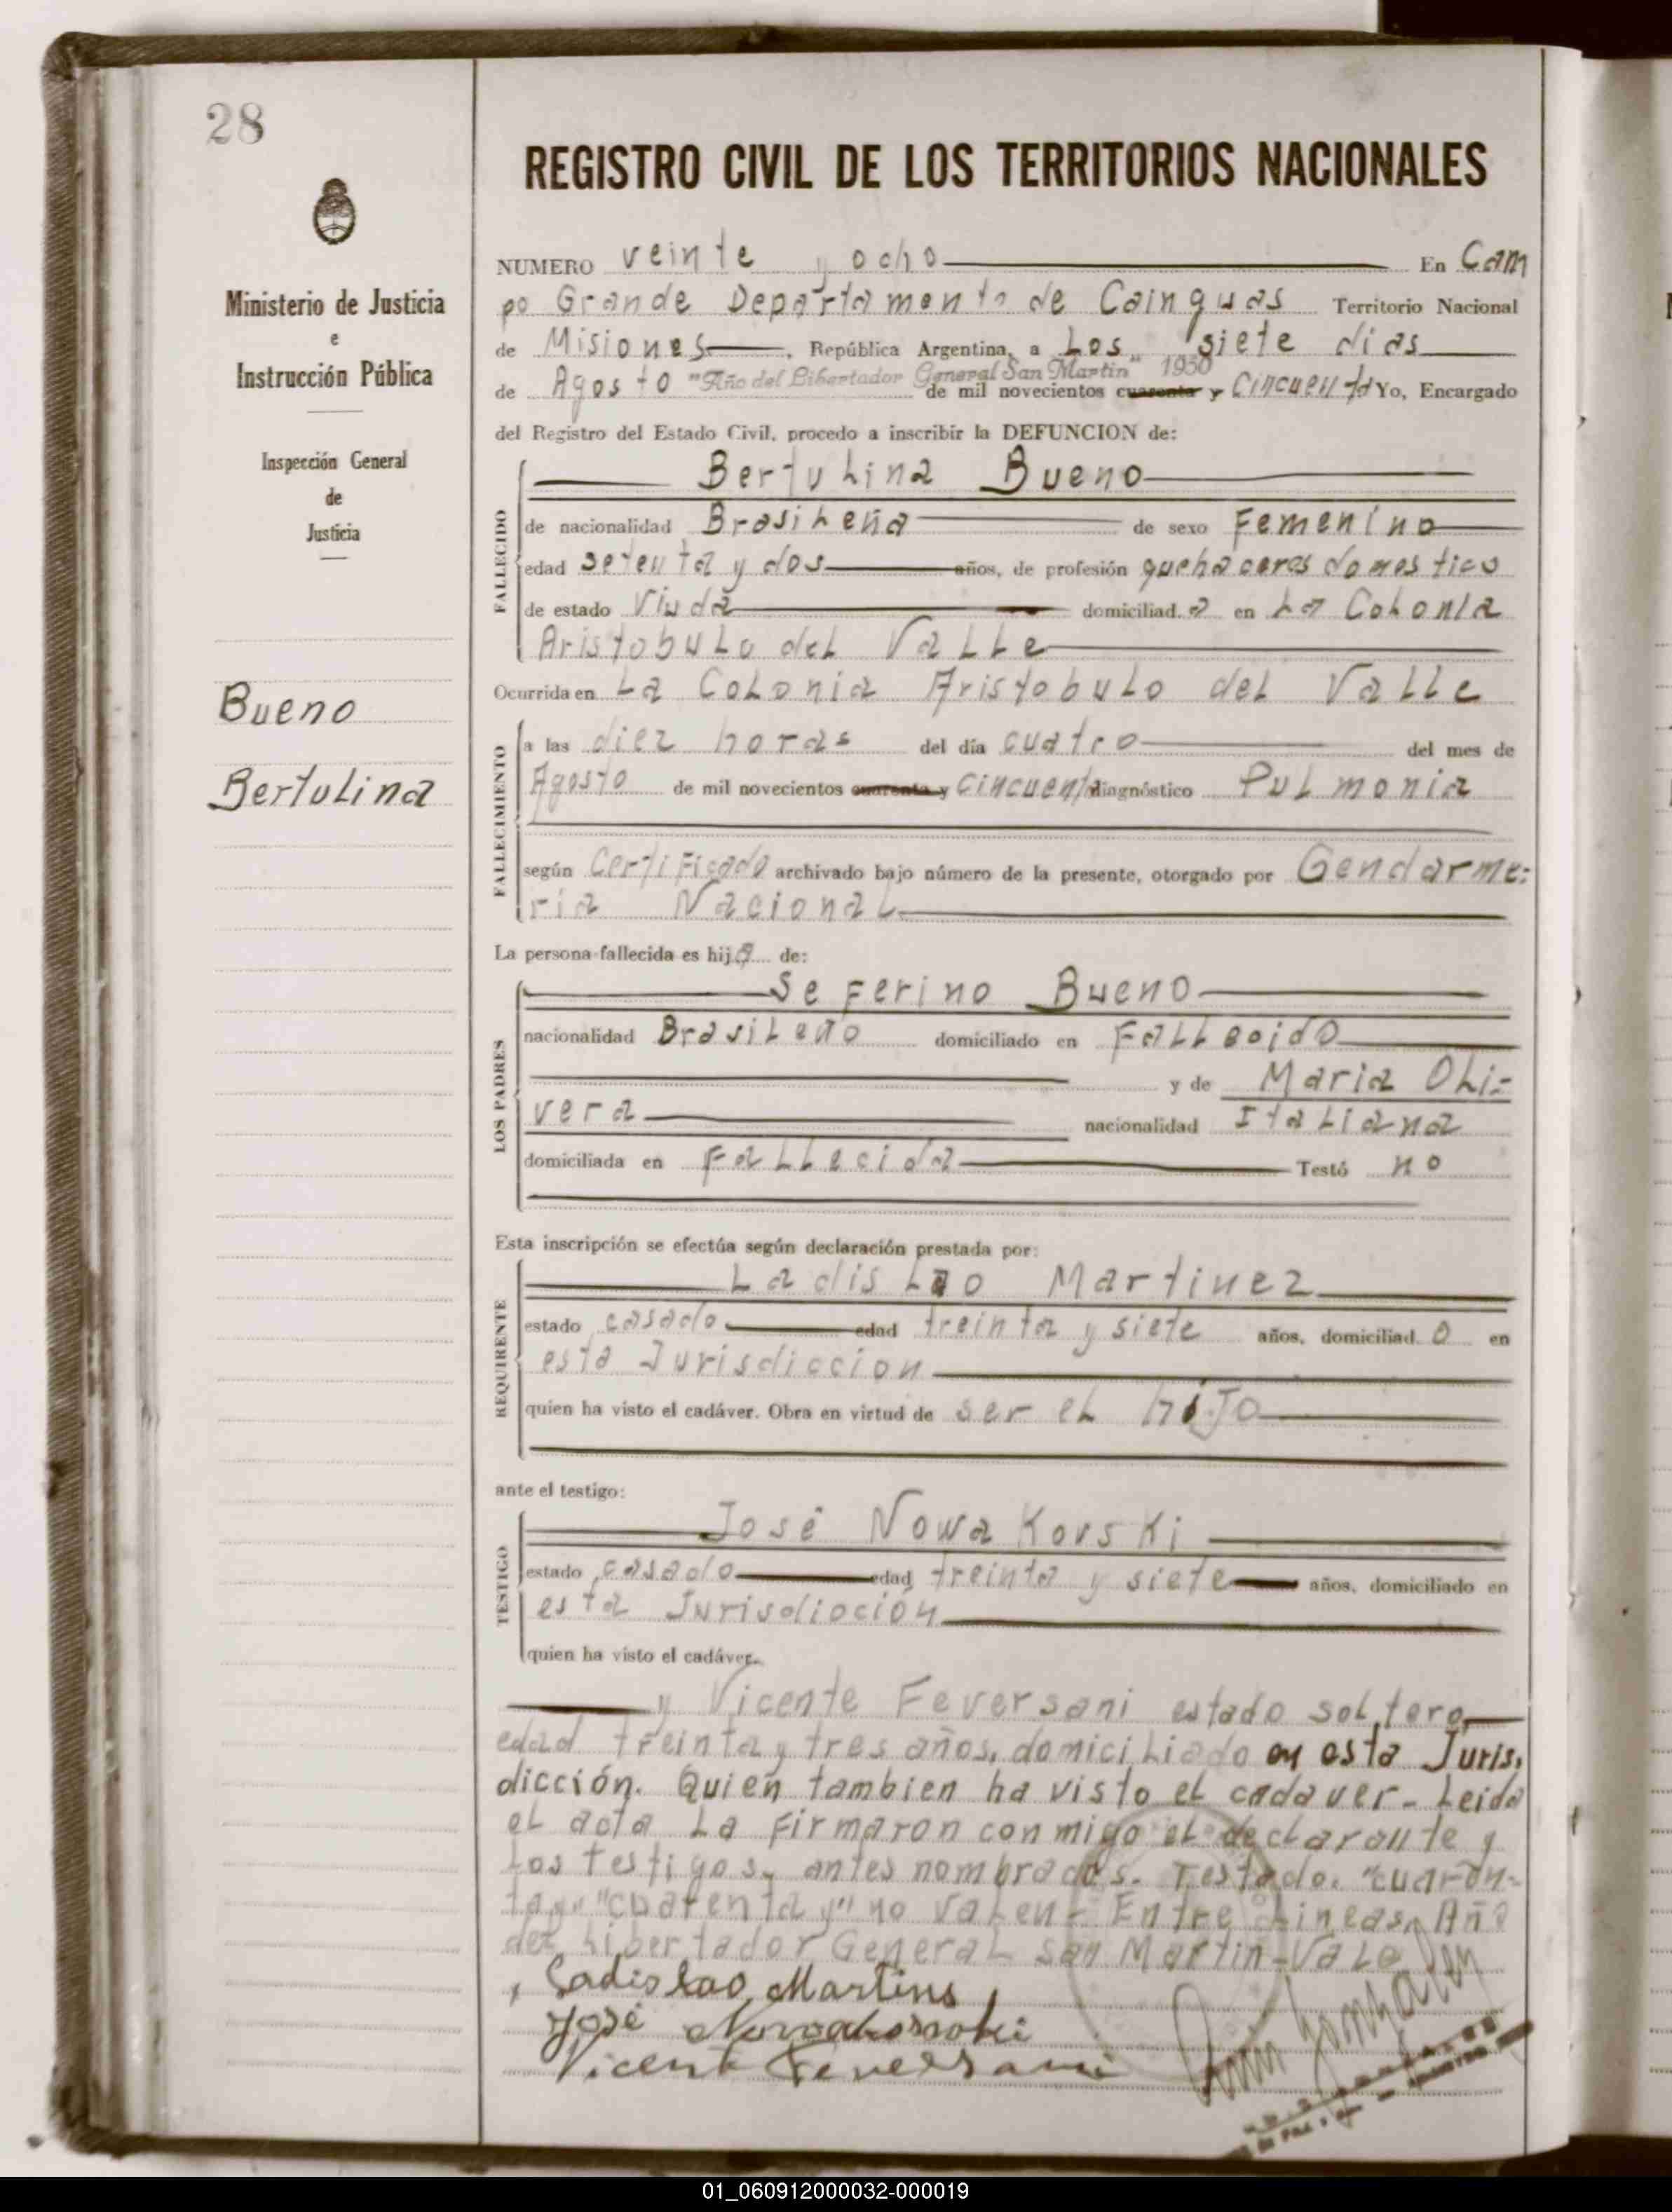 28
Ministerio de Justicia
e
Instrucción Pública
Inspección General
de
Justicia
Bueno
Bertulina
REGISTRO CIVIL DE LOS TERRITORIOS NACIONALES
NUMERO veinte y ocho En Cam
po Grande Departamento de Cainguas Territorio Nacional
de Misiones, República Argentina, a Los siete dias
"Año del Libertador General San Martin" 1950
de Agosto de mil novecientos cuarenta y Cincuenta Yo, Encargado
del Registro del Estado Civil, procedo a inscribir la DEFUNCION de:
Bertulina Bueno
FALLECIDO
de nacionalidad Brasileña de sexo Femenino
edad setenta y dos años, de profesión quehaceres domestico
de estado Viuda domiciliad a en La Colonia
Aristobulo del Valle
Ocurrida en La Colonia Aristobulo del Valle
FALLECIMIENTO
a las diez horas del día cuatro del mes de
Agosto de mil novecientos cuarenta y Cincuenta diagnóstico Pulmonia
según Certificado archivado bajo número de la presente, otorgado por Gendarme:
ria Nacional
La persona fallecida es hija de:
Seferino Bueno
LOS PADRES
nacionalidad Brasileño domiciliado en Fallecido
y de Maria Oli=
vera nacionalidad Italiana
domiciliada en Fallecida Testó no
Esta inscripción se efectúa según declaración prestada por:
Ladislao Martinez
REQUIRENTE
estado casado edad treinta y siete años, domiciliad o en
esta Jurisdiccion
quien ha visto el cadáver. Obra en virtud de ser el hiJo
ante el testigo:
José NowaKovsKi
TESTIGO
estado casado edad treinta y siete años, domiciliado en
esta Jurisdicción
quien ha visto el cadáver.
y Vicente Feversani estado soltero
edad treinta y tres años, domiciliado en esta Juris.
dicción. Quien tambien ha visto el cadaver- Leida
el acta La Firmaron conmigo el declarante y
Los testigos, antes nombrados. Testado. "cuaren-
ta y" "cuarenta y" no valen- Entre Lineas, Año
del Libertador General San Martin-Vale
Ladislao Martins
José Nowakowski
Vicente Feversani
01_060912000032-000019